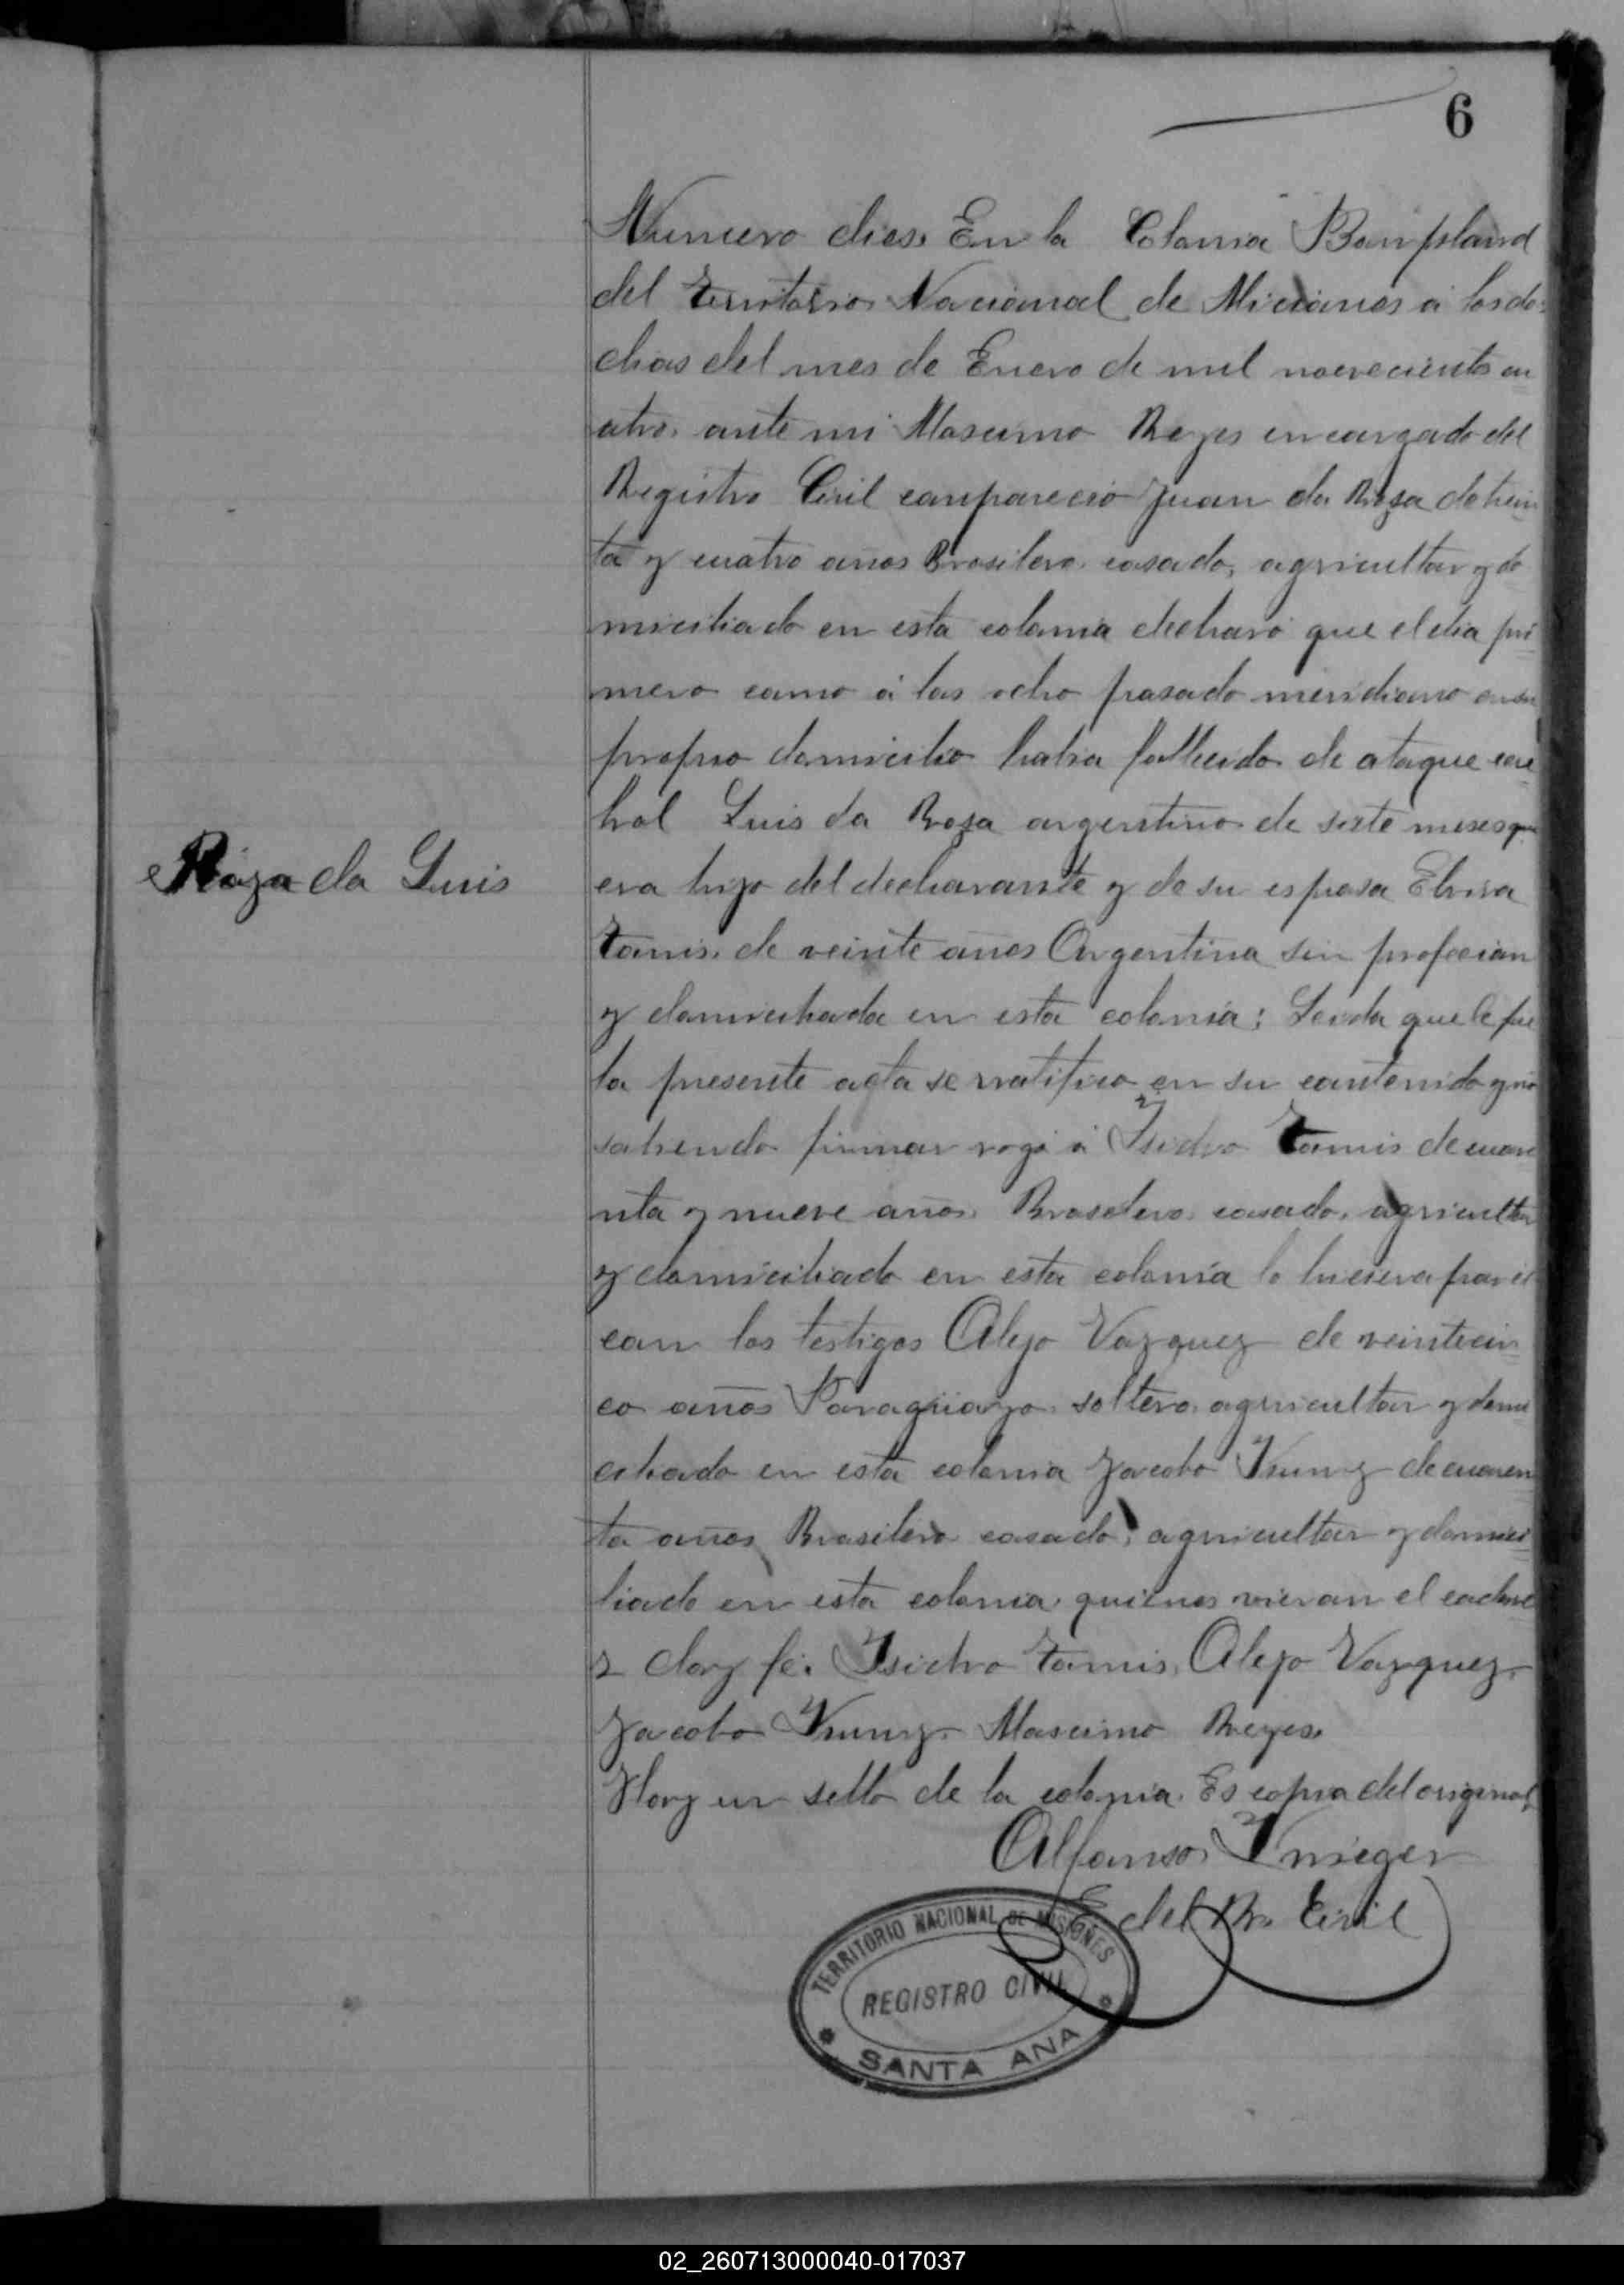 6
Numero dies. En la Colonia Bonpland
del Territorio Nacional de Miciones á los dos
dias del mes de Enero de mil novecientos cu
atro. ante mi Masimo Reyes encargado del
Registro Civil conparecio Juan da Roza de trein
ta y cuatro años Brasilero. casado, agricultor y do
miciliado en esta colonia declaró que el dia pri
mero como á las ocho pasado meridiano en su
propio domicilio habia fallecido de ataque cere
bral Luis da Roza argentino de siete meses que
Roza da Luis
era hijo del declarante y de su esposa Elvira
Tamis. de veinte años Argentina sin profecion
y domiciliada en esta colonia; Leida que le fue
la presente acta se ratifico en su contenido y no
sabiendo firmar rogó á Isidro Tamis de cuare
nta y nueve años. Brasilero. casado. agricultor
y domiciliado en esta colonia lo hiciera por él
con los testigos Alejo Vazquez de veintecin
co años Paraguayo. soltero. agricultor y domi
ciliado en esta colonia Jacobo Kunz de cuaren
ta años Brasilero casado, agricultor y domici
liado en esta colonia. quienes vieron el cadave
r doy fé. Isidro Tamis, Alejo Vazquez.
Jacobo Kunz. Masimo Reyes.
Hay un sello de la colonia. Es copia del original,
Alfonso Krieger
E. del R. Civil
TERRITORIO NACIONAL DE MISIONES
REGISTRO CIVIL
* SANTA ANA *
02_260713000040-017037